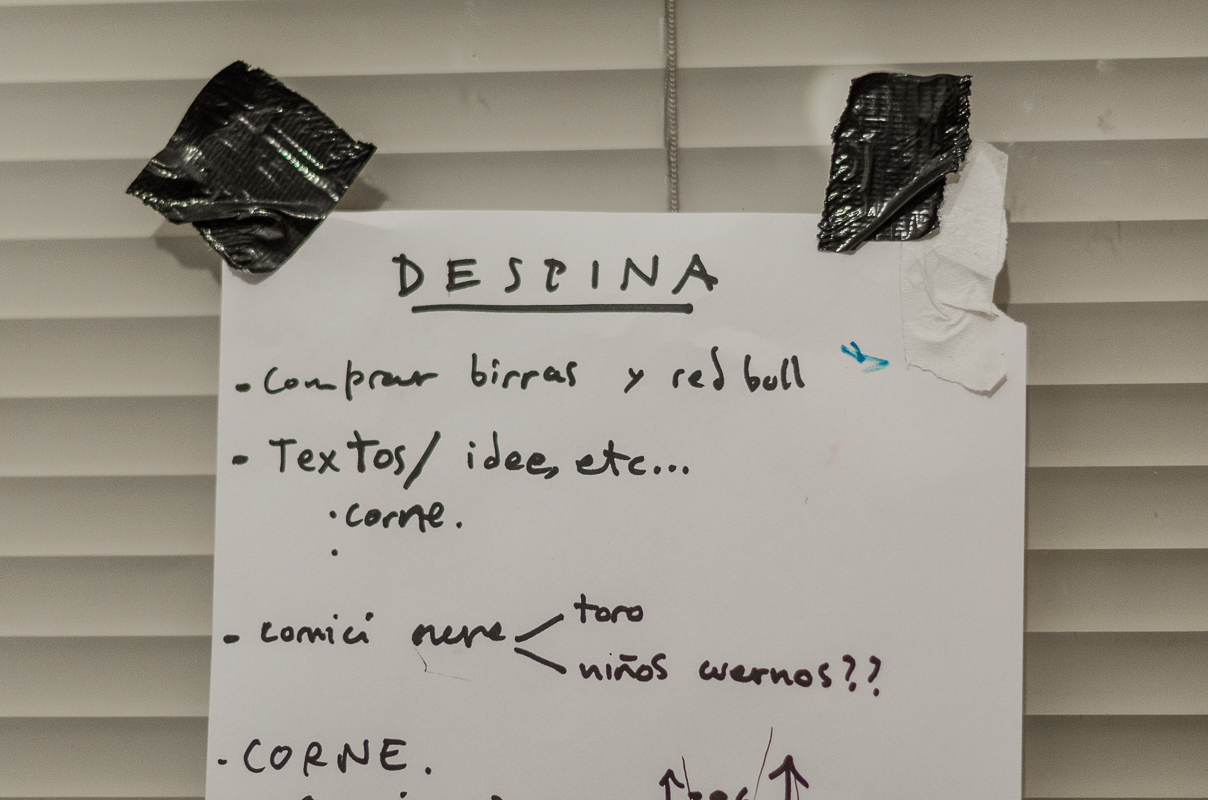 DESPINA
- comprar birras y red bull
- Textos/ idee, etc...
· corne.
·
- comici nere
toro
niños cuernos??
· CORNE.